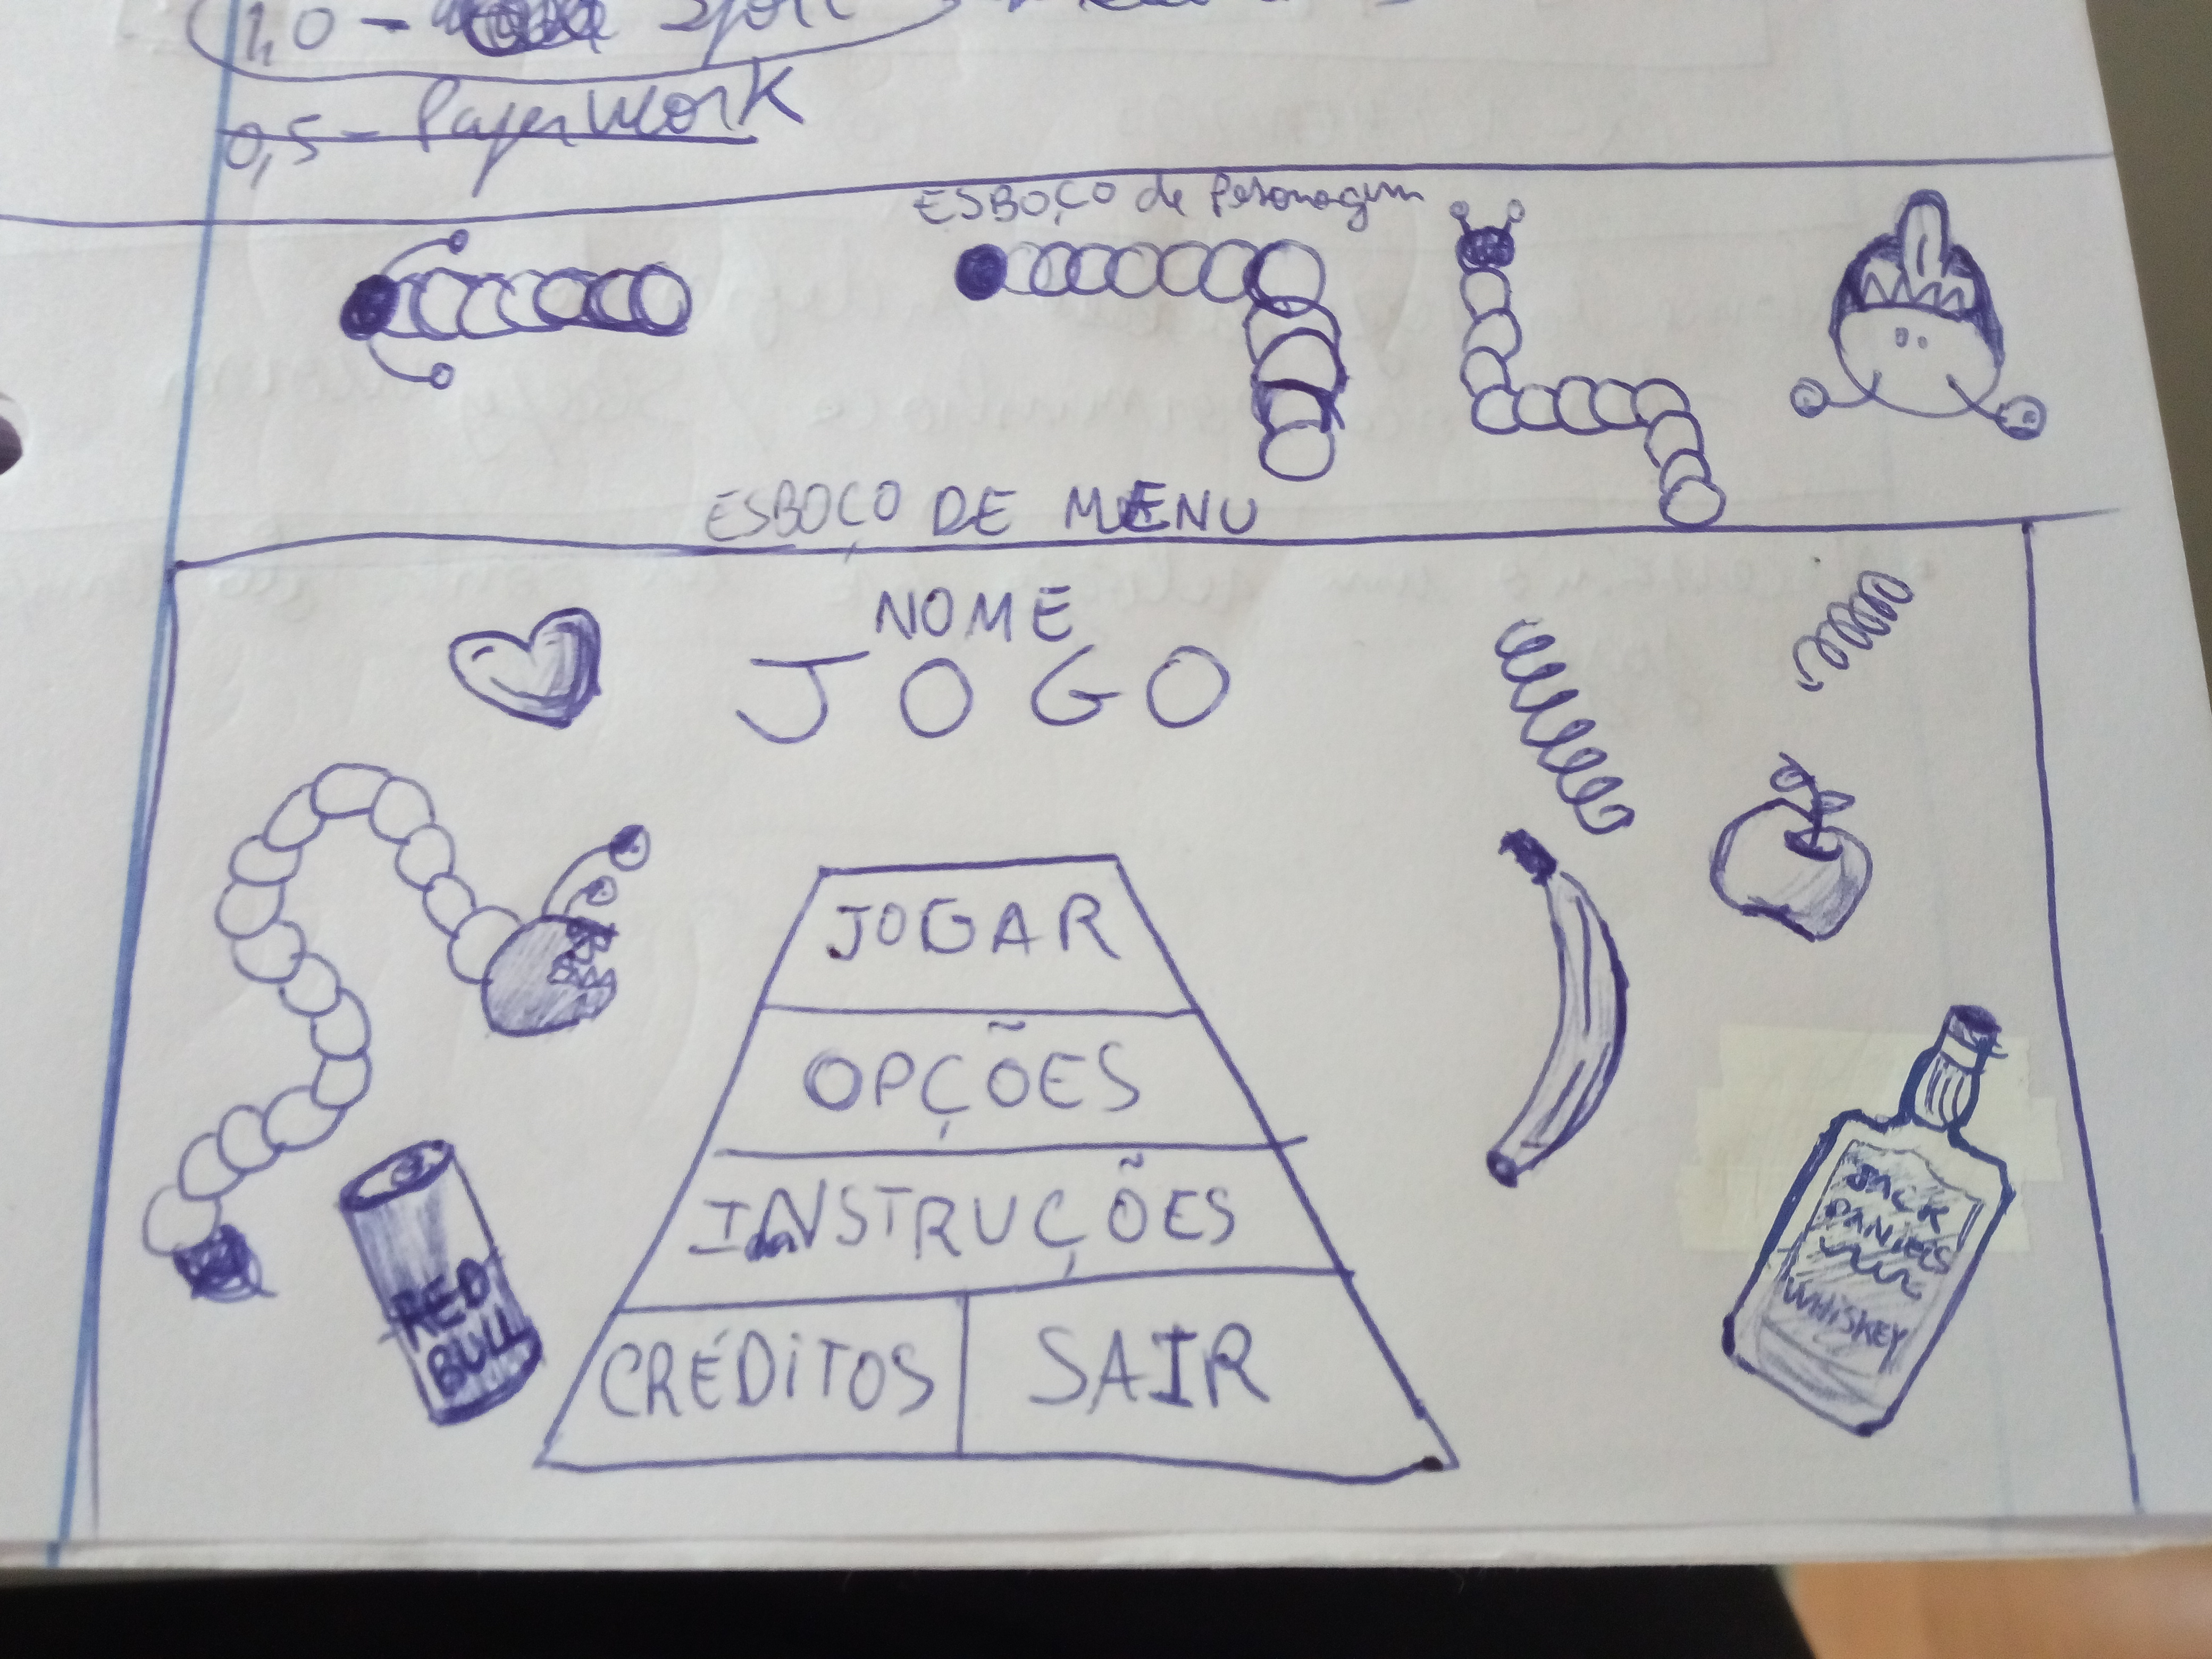 1,0 -
0,5 - PaperWork
ESBOÇO de Personagem
ESBOÇO DE MENU
NOME
JOGO
JOGAR
OPÇÕES
INSTRUÇÕES
CRÉDITOS
SAIR
RED
BULL
JACK
DANIELS
WHISKEY